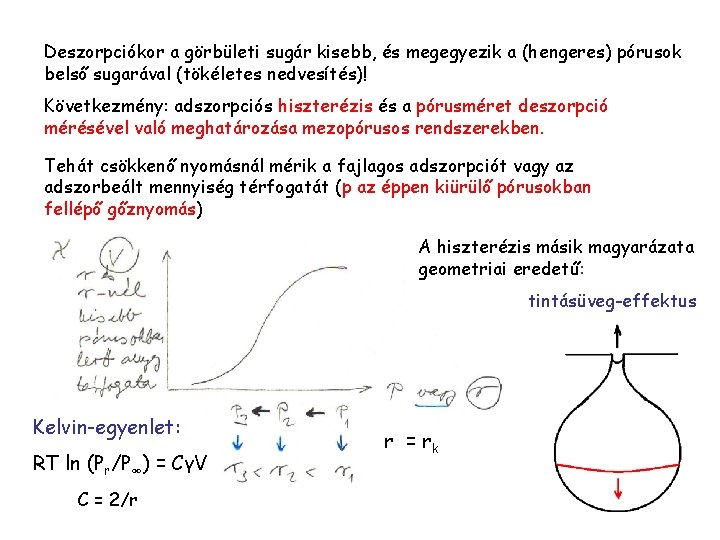 Deszorpciókor a görbületi sugár kisebb, és megegyezik a (hengeres) pórusok
belső sugarával (tökéletes nedvesítés)!
Következmény: adszorpciós hiszterézis és a pórusméret deszorpció
mérésével való meghatározása mezopórusos rendszerekben.
Tehát csökkenő nyomásnál mérik a fajlagos adszorpciót vagy az
adszorbeált mennyiség térfogatát (p az éppen kiürülő pórusokban
fellépő gőznyomás)
A hiszterézis másik magyarázata
geometriai eredetű:
tintásüveg-effektus
V
r és
r-nél
kisebb
pórusokban
lévő anyag
térfogata
p vagy r
P3 ← P2 ← P1
r3 < r2 < r1
Kelvin-egyenlet:
RT ln (Pr/P∞) = CγV
C = 2/r
r = rk